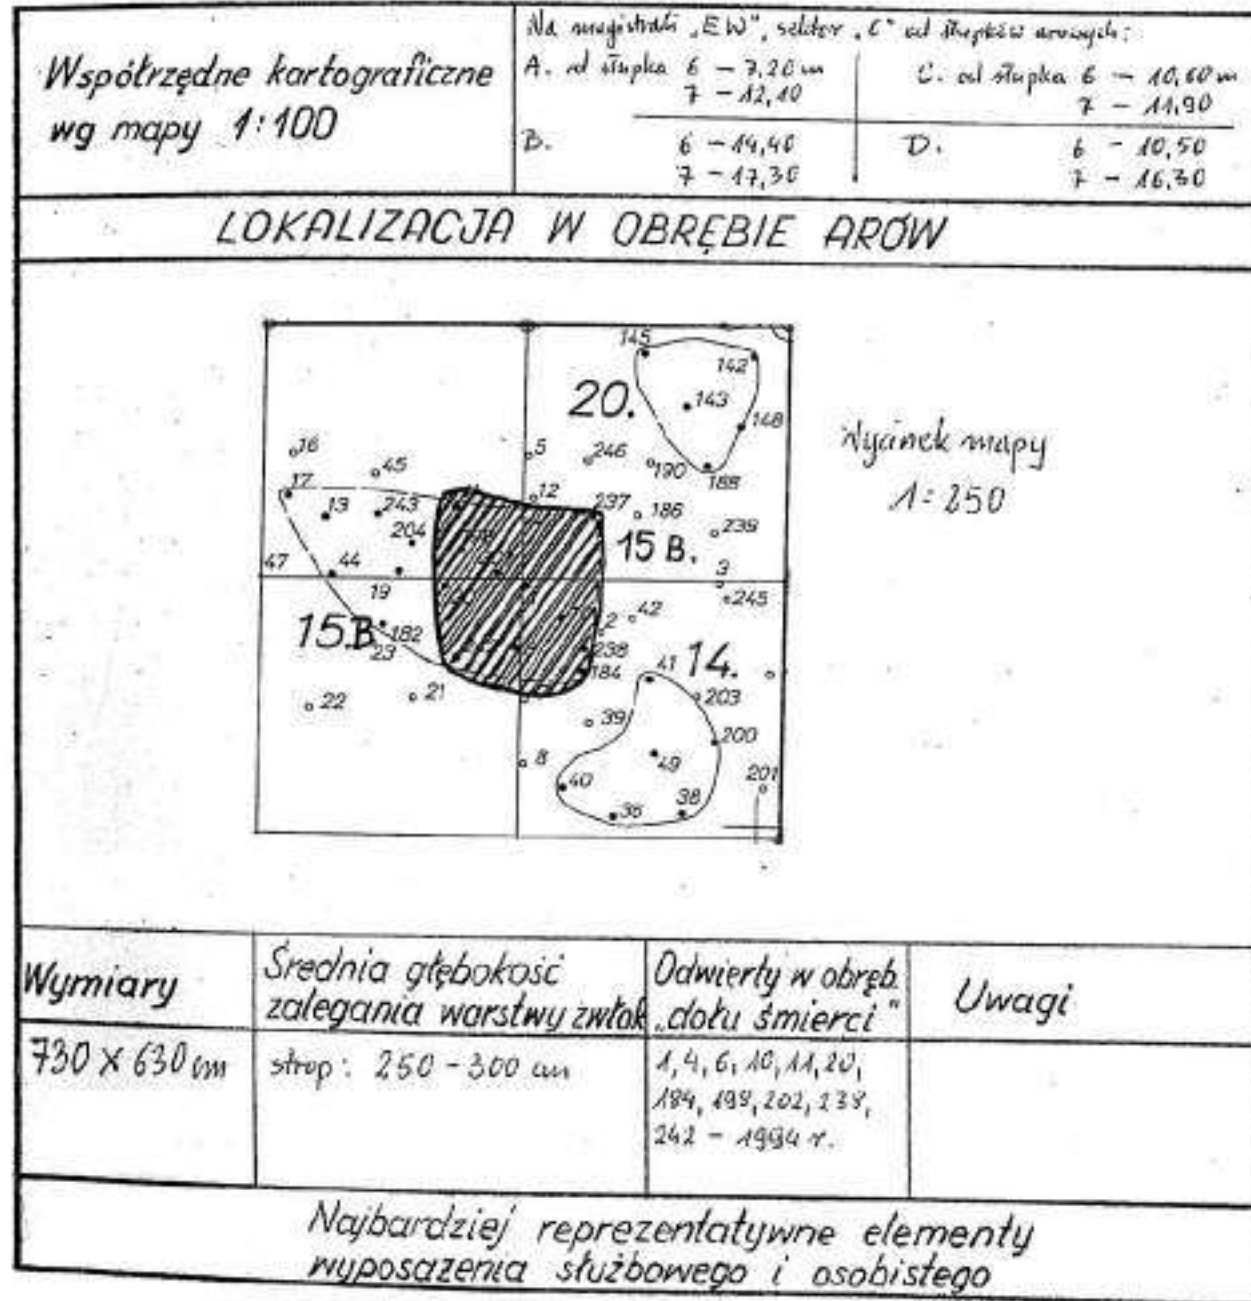 Współrzędne kartograficzne
wg mapy 1:100
Na magistrali „EW”, sektor „C” od słupków arowych:
A. od słupka 6 – 7,20 m
7 – 12,10
C. od słupka 6 – 10,60 m
7 – 11,90
B. 6 – 14,40
7 – 17,30
D. 6 – 10,50
7 – 16,30
LOKALIZACJA W OBRĘBIE ARÓW
145
142
20.
143
148
16
5
246
190
188
45
17
12
237
186
13
243
239
204
15 B.
47
44
3
245
19
42
2
15B
182
23
238
184
41
14.
203
22
21
39
200
8
49
201
40
36
38
Wycinek mapy
1:250
Wymiary
Średnia głębokość
zalegania warstwy zwłok
Odwierty w obręb.
„dołu śmierci”
Uwagi
730 x 630 cm
strop: 250 - 300 cm
1, 4, 6, 10, 11, 20,
184, 198, 202, 238,
242 – 1994 r.
Najbardziej reprezentatywne elementy
wyposażenia służbowego i osobistego